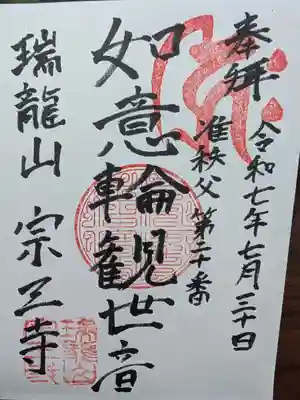 奉拝
令和七年七月三十日
准秩父 第二十番
如意輪観世音
瑞龍山 宗三寺